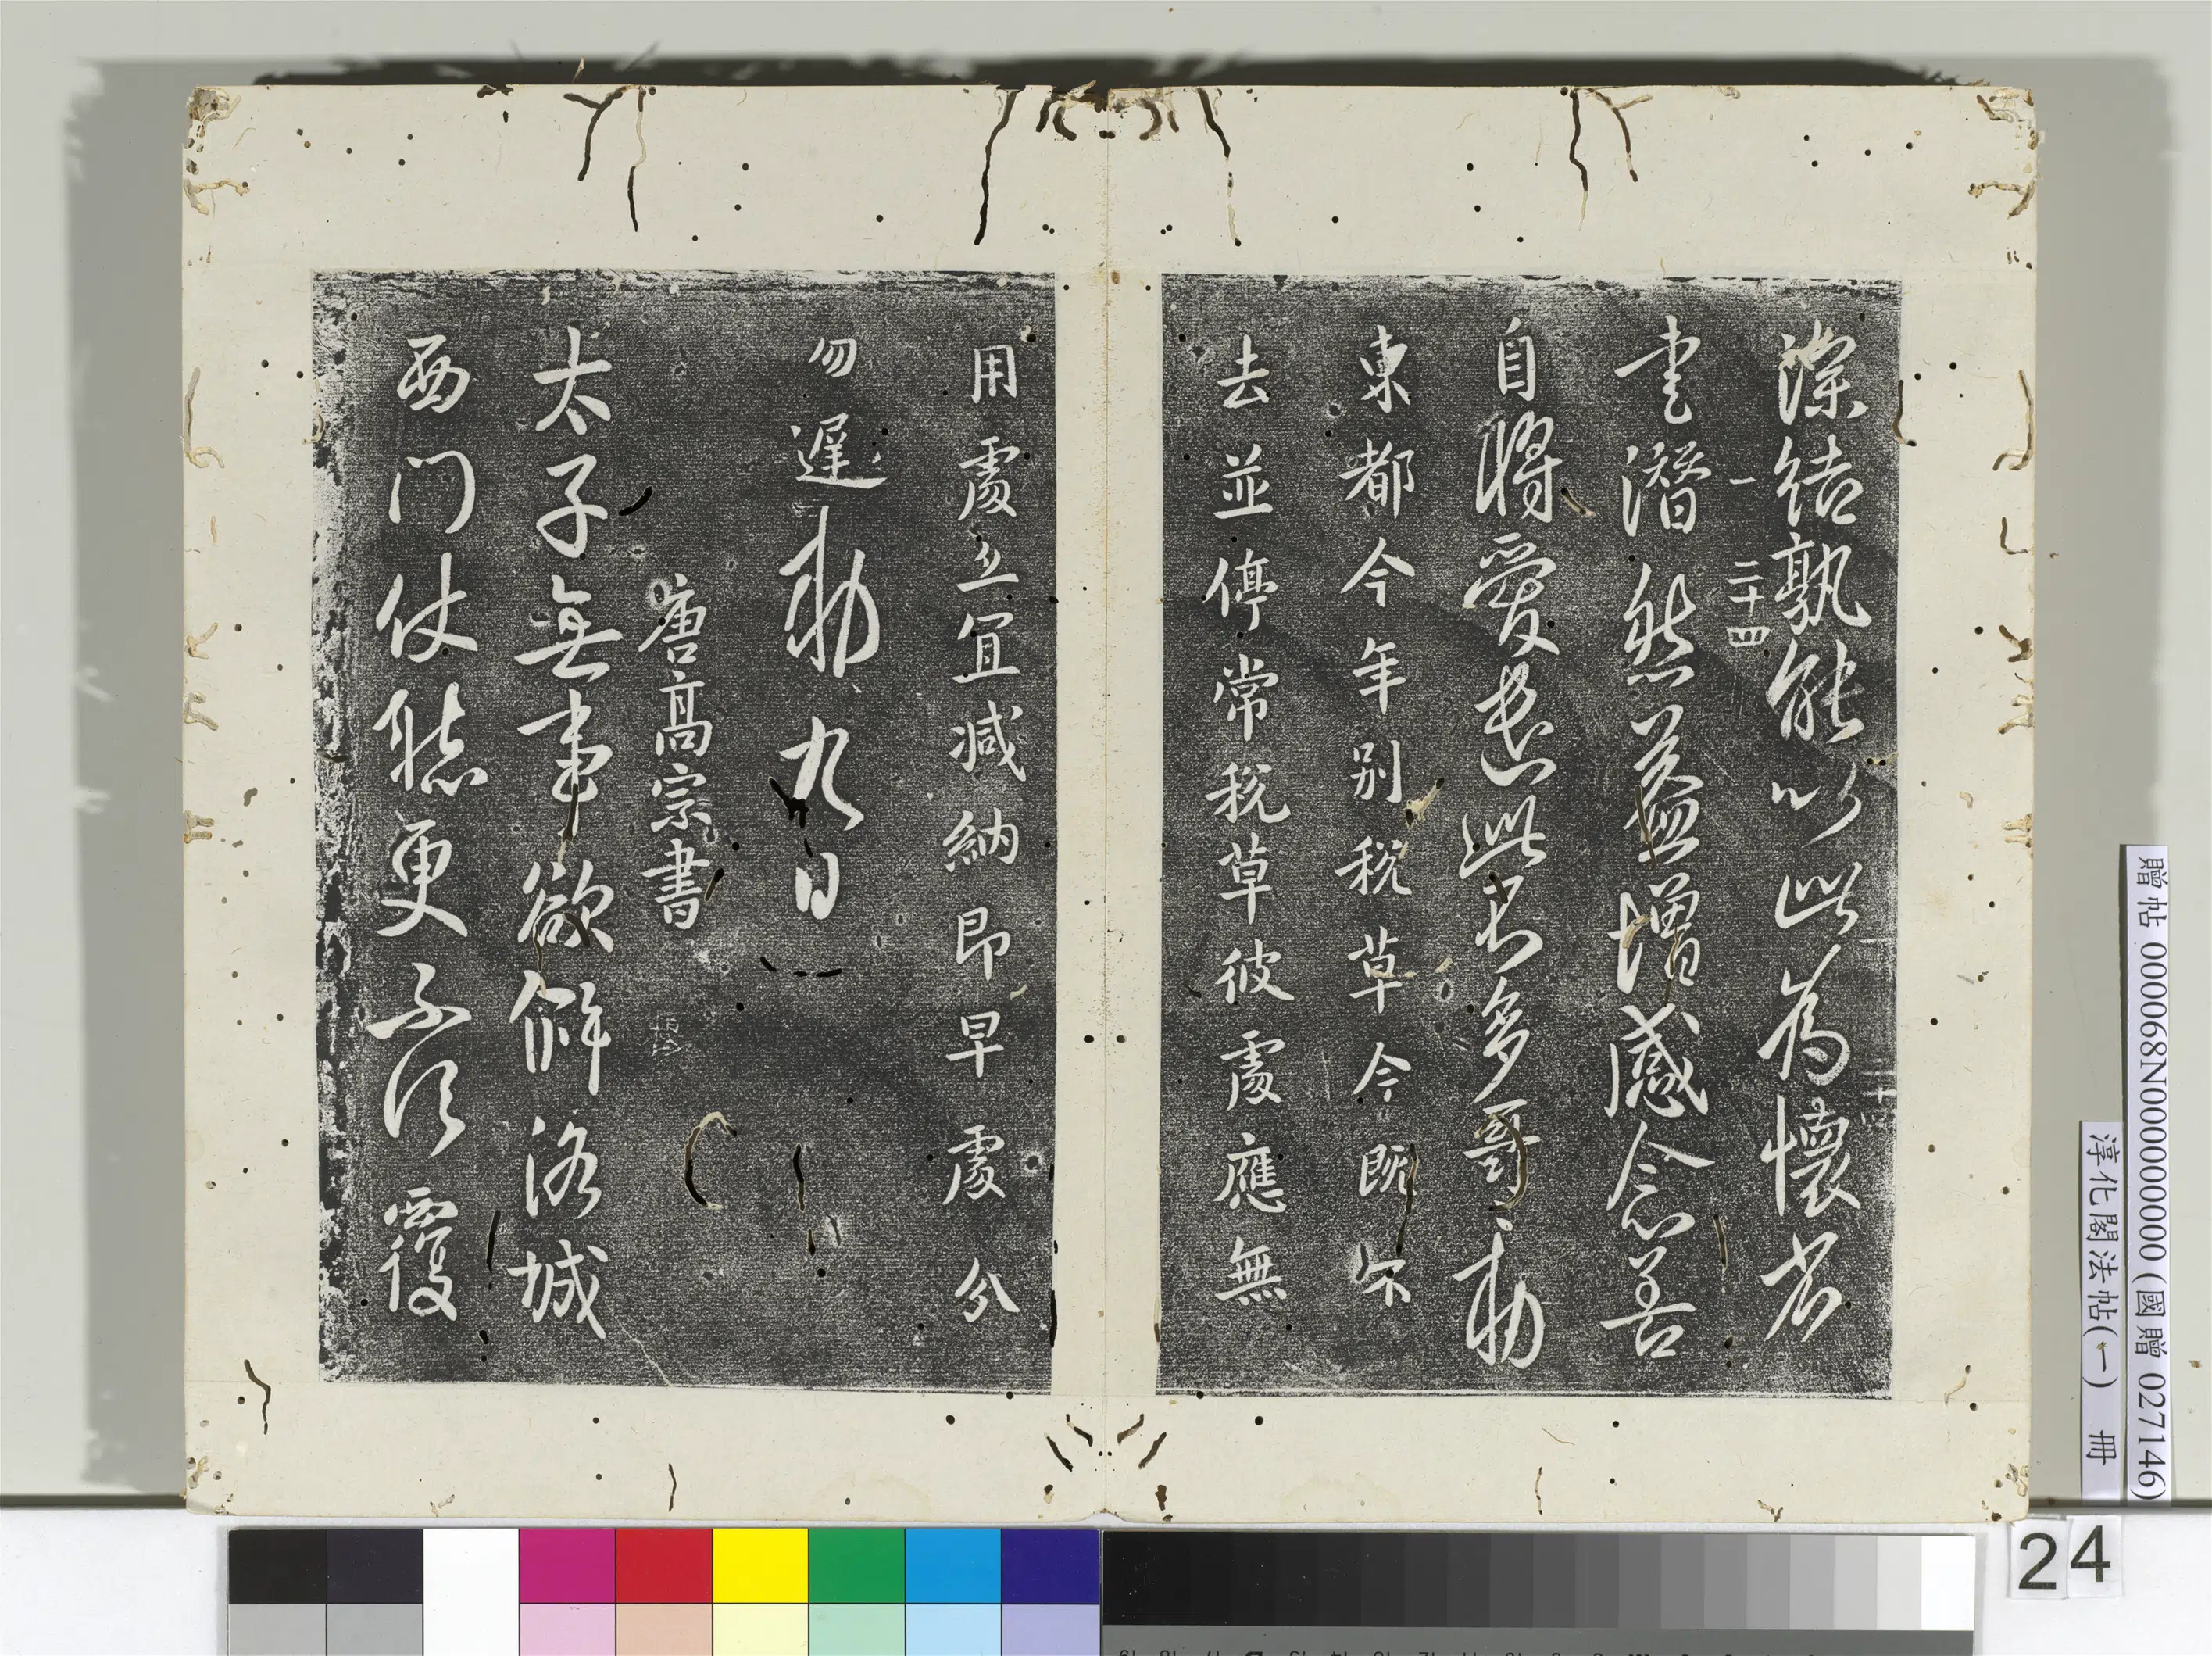 深結孰能以此為懷者
一 二十四
书潛然益增感念善
自將愛遣此不多哥勅
東都今年別稅草今既
去並停常稅草彼處應無
用處並宜減納即早處分
勿遲勅 九日
唐高宗書
太子無事欲解洛城
西门仗聽更不須覆
贈帖 000068N000000000(國贈 027146)
淳化閣法帖(一) 冊
24